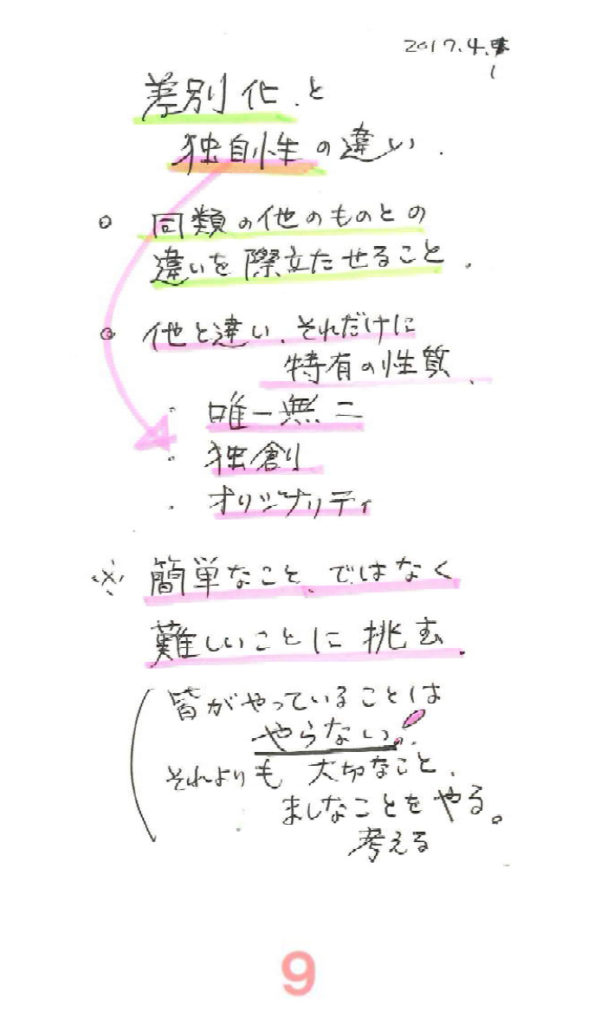 2017.4.
1
差別化、と
独自性の違い.
○ 同類の他のものとの
違いを際立たせること.
○ 他と違い、それだけに
特有の性質.
・ 唯一無二
・ 独創
・ オリジナリティ
※ 簡単なこと、ではなく
難しいことに挑
(皆がやっていることは
やらない。!
それよりも 大切なこと、
ましなことをやる。
考える
9